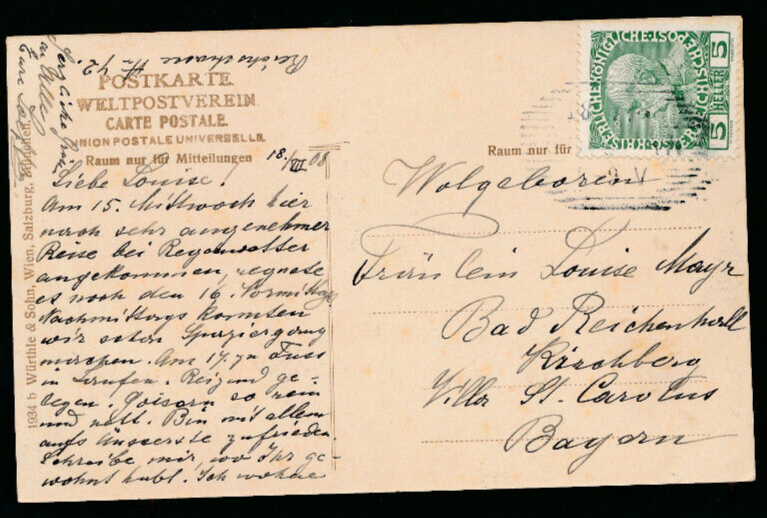 POSTKARTE
WELTPOSTVEREIN
CARTE POSTALE.
UNION POSTALE UNIVERSELLE.
Raum nur für Mitteilungen
18./VII 08
Liebe Louise!
Am 15. Mittwoch hier
nach sehr angenehmer
Reise bei Regenwetter
angekommen, regnete
es noch den 16. Vormittag
Nachmittags konnten
wir schon Spaziergang
machen. Am 17. zu Fuss
in Laufen. Reizend ge-
legen. Goisern so rein
und nett. Bin mit allem
aufs äusserste zufrieden.
Schreibe mir, wo Ihr ge-
wohnt habt. Ich wohne
42.
Herzliche
an Alle
Eure
1934 b Würthle & Sohn, Wien, Salzburg, München.
Raum nur für
KAISERLICHE KÖNIGLICHE ÖSTERREICHISCHE POST
5 HELLER 5
Wolgeboren
Fräulein Louise Mayr
Bad Reichenhall
Kirchberg
Villa St. Carolus
Bayern